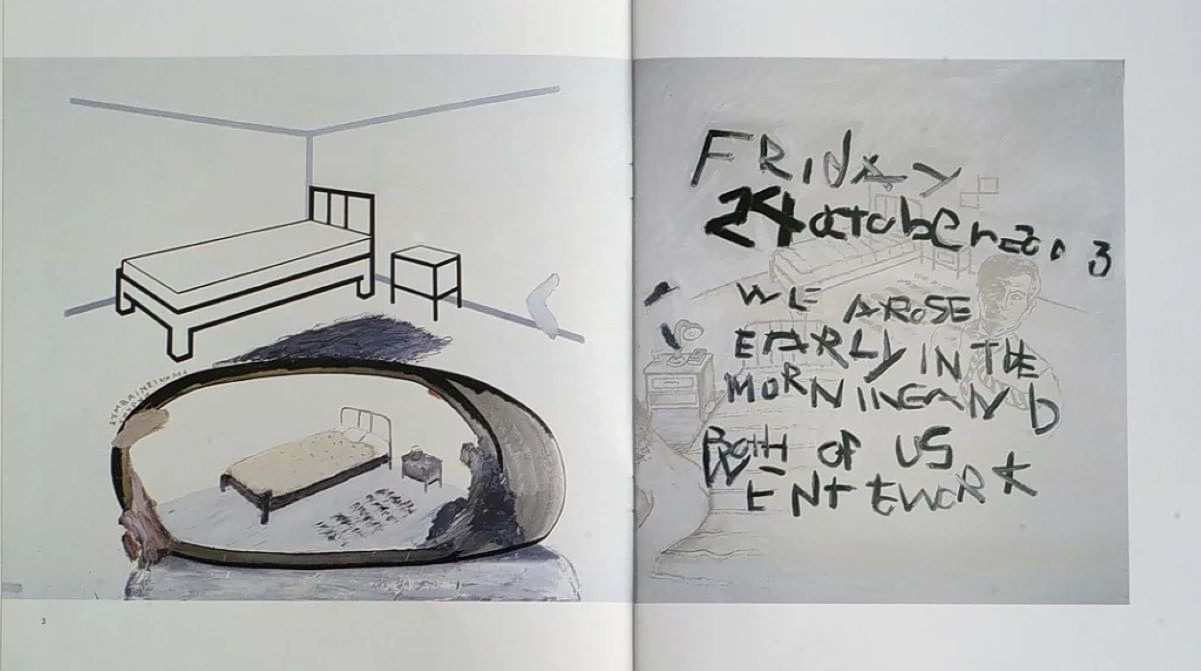 FRIdAY
24 octobER 2003
WE AROSE
EARLY IN THE
MORNING AND
BOTH OF US
WENt WORK
3